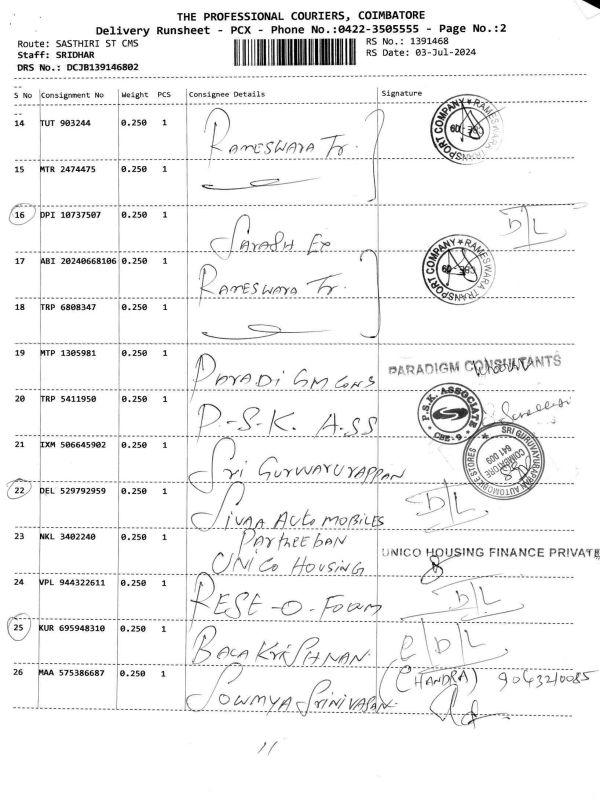 THE PROFESSIONAL COURIERS, COIMBATORE
Delivery Runsheet - PCX - Phone No.:0422-3505555 - Page No.:2
Route: SASTHIRI ST CMS RS No.: 1391468
Staff: SRIDHAR RS Date: 03-Jul-2024
DRS No.: DCJB139146802
S No Consignment No Weight PCS Consignee Details Signature
14 TUT 903244 0.250 1 RAMESWARA Tr. TRANSPORT COMPANY ★ RAMESWARA CBE-09
15 MTR 2474475 0.250 1
16 DPI 10737507 0.250 1 D/L
17 ABI 20240668106 0.250 1 RAMESWARA Tr. TRANSPORT COMPANY ★ RAMESWARA CBE-09
18 TRP 6808347 0.250 1
19 MTP 1305981 0.250 1 PARADIGM CONS PARADIGM CONSULTANTS
20 TRP 5411950 0.250 1 P.S.K. ASS P.S.K. ASSOCIATE CBE-9
21 IXM 506645902 0.250 1 SRI GURUVAYURAPPAN SRI GURUVAYURAPPAN AUTOMOBILE STORES COIMBATORE 641 009
22 DEL 529792959 0.250 1 SIVAA AUTOMOBILES D/L
23 NKL 3402240 0.250 1 Partheeban
UNICO HOUSING UNICO HOUSING FINANCE PRIVATE
24 VPL 944322611 0.250 1 RESE-O-FOam D/L
25 KUR 695948310 0.250 1 BALAKRISHNAN D/L
26 MAA 575386687 0.250 1 SOWMYA SRINIVASAN (CHANDRA)
11